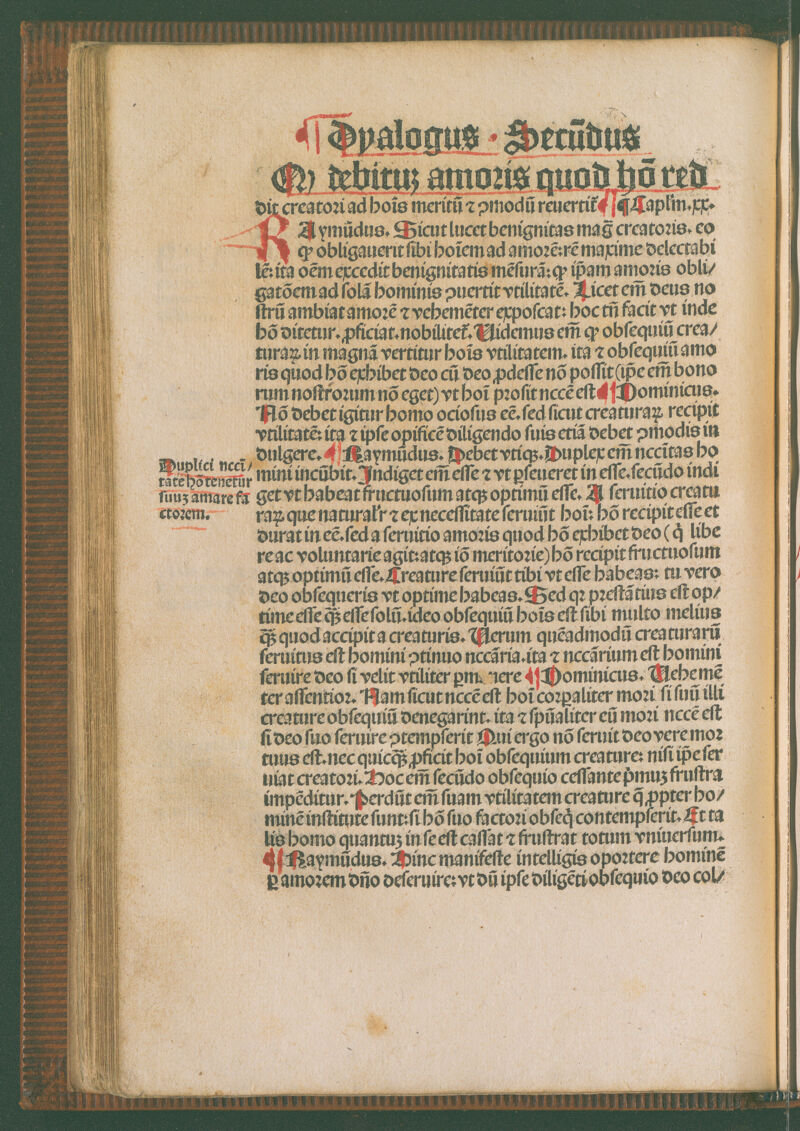 ¶ Dyalogus · Secūdus
Q debituʒ amoris quod hō red
dit creatori ad hoīs meritū ⁊ ꝯmodū reuertit̄ ¶ Caplm̄.xx.
RAymūdus. Sicut lucet benignitas maḡ creatoris. eo
ꝙ obligauerit sibi hoīem ad amorē:rē maxime delectabi
lē: ita oēm excedit benignitatis mēsurā: ꝙ ip̄am amoris obli/
gatōem ad solā hominis ꝯuertit vtilitatē. Licet em̄ deus no
strū ambiat amorē ⁊ vehemēter exposcat: hoc tn̄ facit vt inde
hō ditetur. ꝓficiat. nobilitet̄. Uidemus em̄ ꝙ obsequiū crea/
turaꝝ in magnā vertitur hoīs vtilitatem. ita ⁊ obsequiū amo
ris quod hō exhibet deo cū deo ꝓdesse nō possit (ip̄e em̄ bono
rum nostrorum nō eget) vt hoī prosit nccē est ¶ Dominicus.
Nō debet igitur homo ociosus eē. sed sicut creaturaꝝ recipit
vtilitatē: ita ⁊ ipse opificē diligendo suis etiā debet ꝯmodis in
dulgere. ¶ Raymūdus. Debet vtiqꝫ. Duplex em̄ nccītas ho
mini incūbit. Indiget em̄ esse ⁊ vt ꝑseueret in esse. secūdo indi
get vt habeat fructuosum atqꝫ optimū esse. A seruitio creatu
raꝝ que naturalr̄ ⁊ ex necessitate seruiūt hoī: hō recipit esse et
durat in eē. sed a seruitio amoris quod hō exhibet deo (q̇ libe
re ac voluntarie agit: atqꝫ iō meritorie) hō recipit fructuosum
atqꝫ optimū esse. Creature seruiūt tibi vt esse habeas: tu vero
deo obsequeris vt optime habeas. Sed qꝛ prestātius est op/
time esse qꝫ̄ esse solū. ideo obsequiū hoīs est sibi multo melius
qꝫ̄ quod accipit a creaturis. Uerum quēadmodū creaturarū
seruitus est homini ꝯtinuo nccāria. ita ⁊ nccārium est homini
seruire deo si velit vtiliter ꝑm nere ¶ Dominicus. Uehemē
ter assentior. Nam sicut nccē est hoī corꝑaliter mori si suū illi
creature obsequiū denegarint. ita ⁊ sp̄ualiter eū mori nccē est
si deo suo seruire ꝯtempserit Qui ergo nō seruit deo vere mor
tuus est. nec quicqꝫ̄ ꝓficit hoī obsequium creature: nisi ip̄e ser
uiat creatori. Hoc em̄ secūdo obsequio cessante p̄muʒ frustra
impēditur. Perdūt em̄ suam vtilitatem creature q̄ ꝓpter ho/
minē institute sunt: si hō suo factori obseq̇ contempserit. Et ta
lis homo quantuʒ in se est cassat ⁊ frustrat totum vniuersum.
¶ Raymūdus. Hinc manifeste intelligis oportere hominē
ꝑ amorem dn̄o deseruire: vt dū ipse diligēti obsequio deo col/
Duplici nccī/
tate hō tenetur
suuʒ amare fa
ctorem.